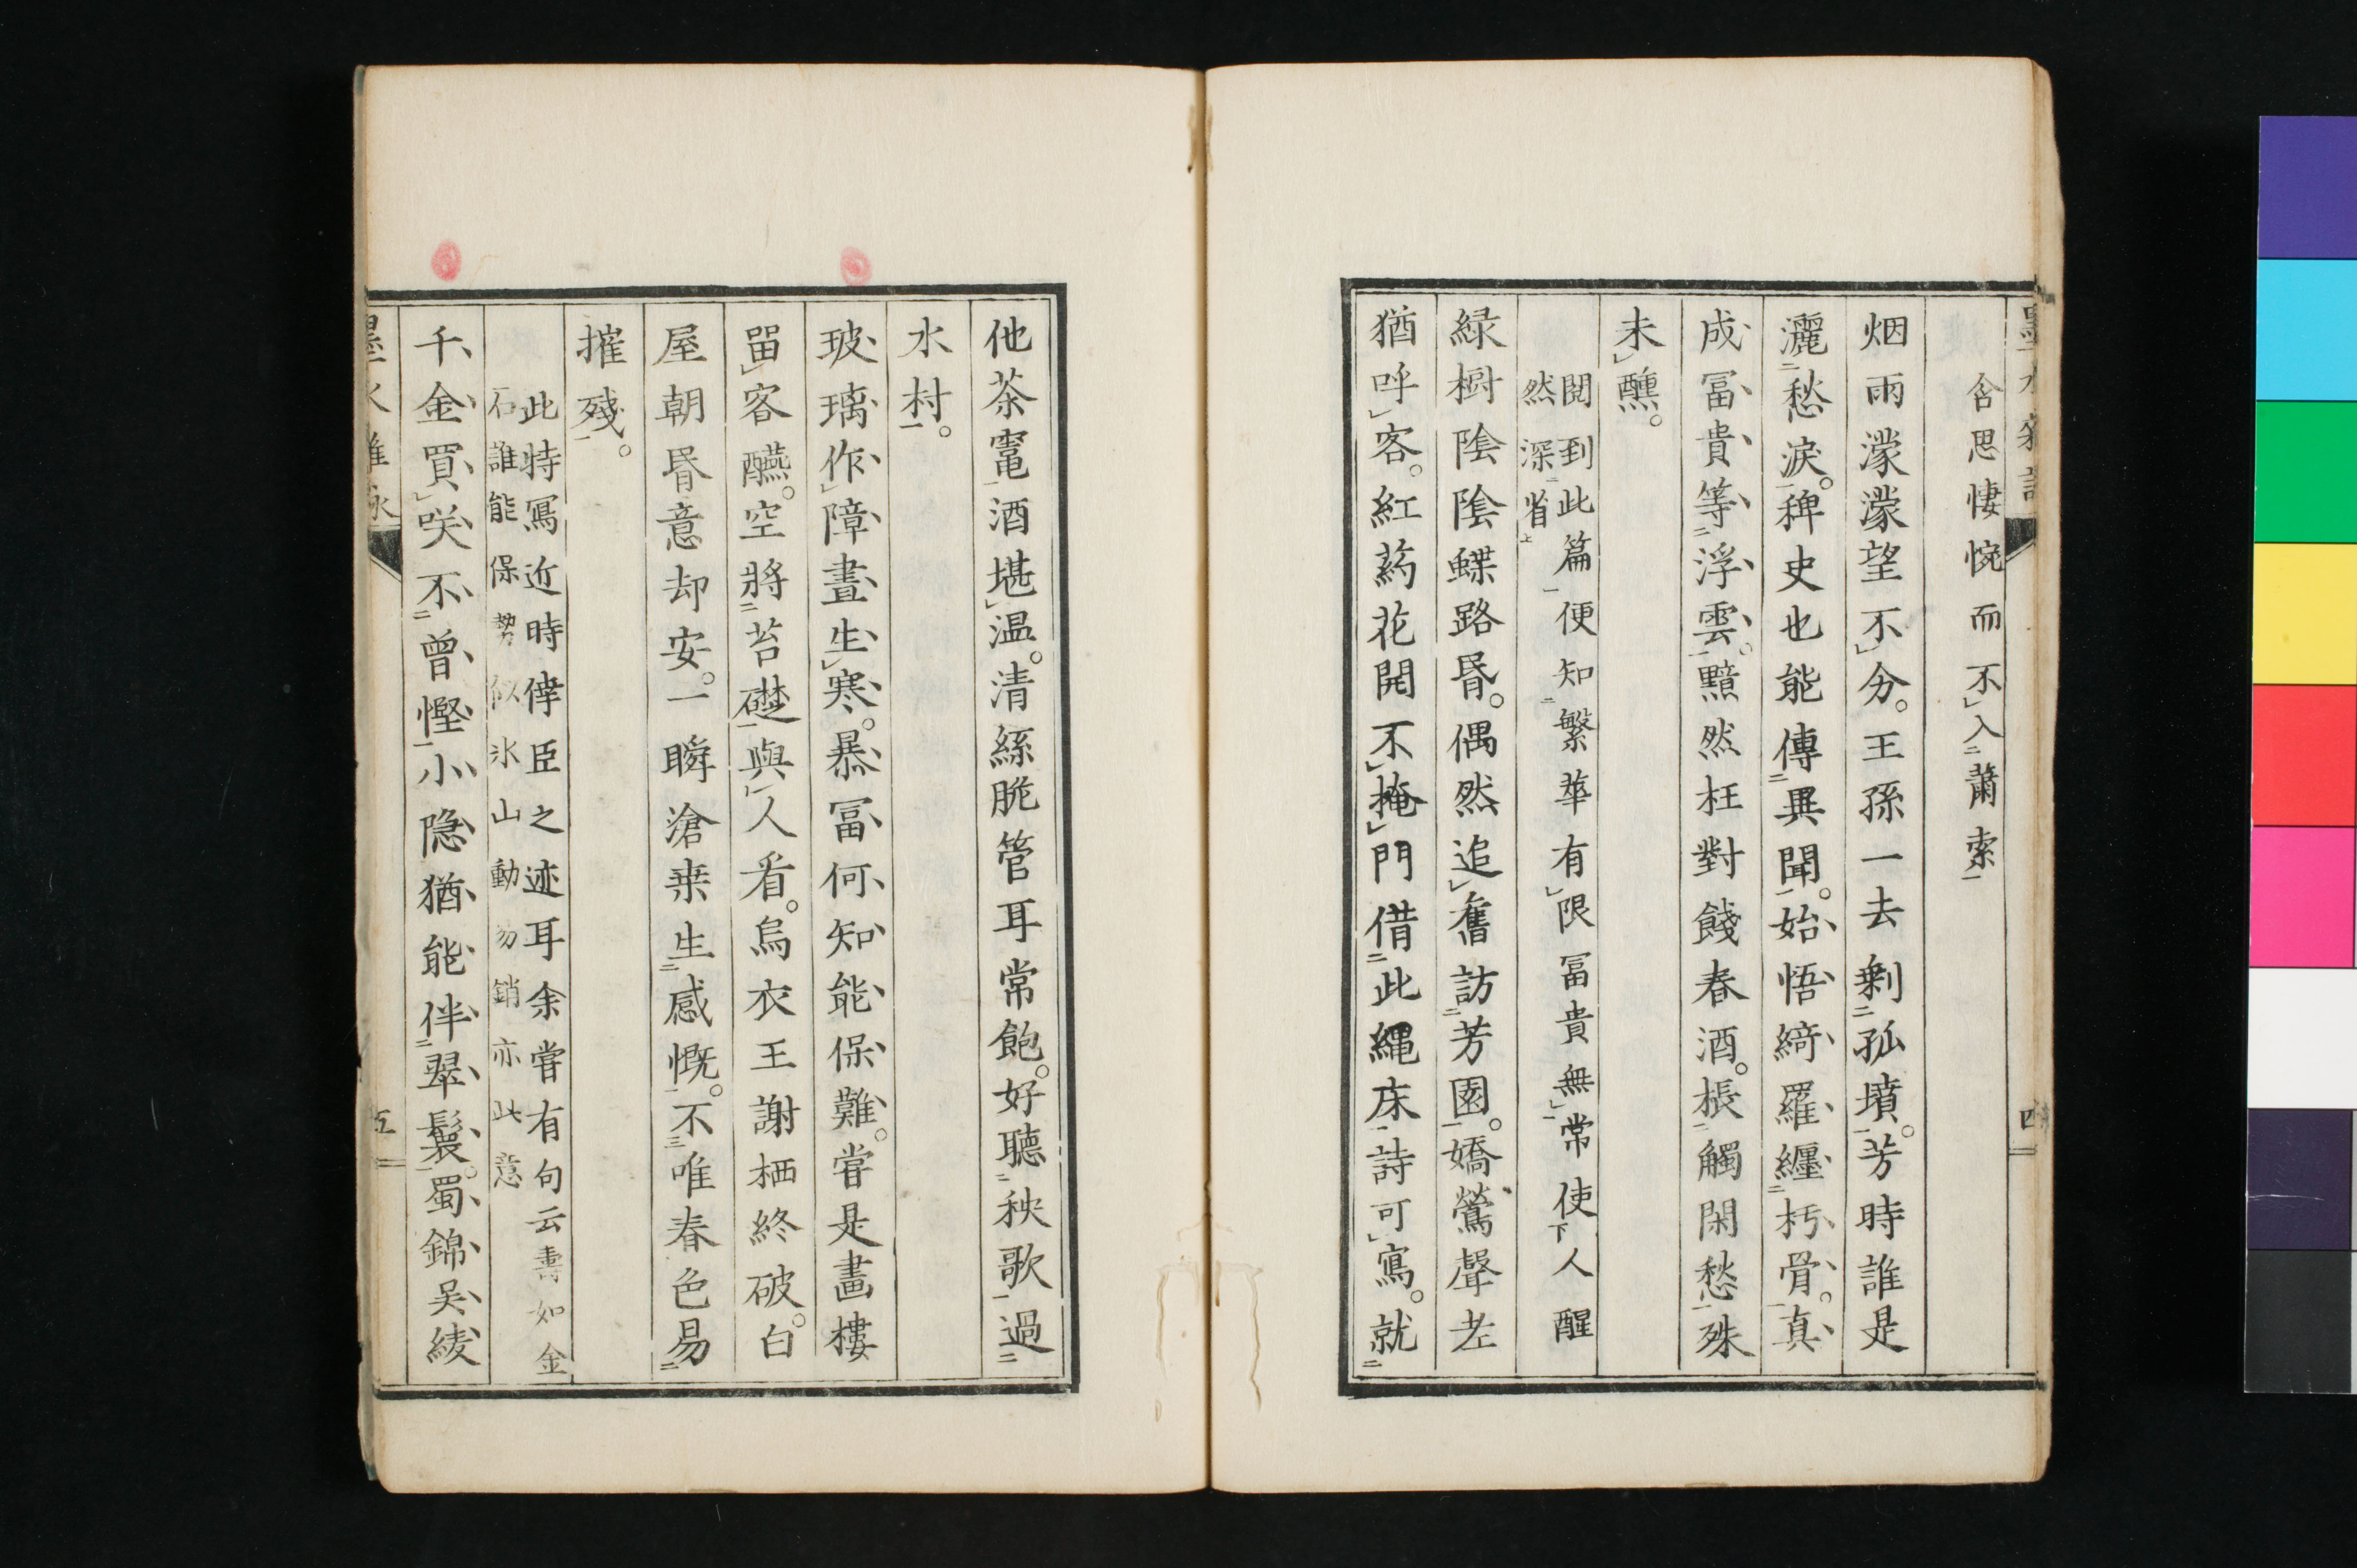 含思悽惋而不入蕭索
烟雨濛濛望不分。王孫一去剰孤墳。芳時誰是
灑愁淚。稗史也能傳異聞。始悟綺羅纏朽骨。真
成冨貴等浮雲。黯然枉對餞春酒。棖觸閑愁殊
未醺。
閲到此篇便知繁華有限冨貴無常使人醒
然深省
緑樹陰陰蝶路昏。偶然追舊訪芳園。嬌鶯聲老
猶呼客。紅葯花開不掩門借此繩床詩可寫。就
他茶竃酒堪温。清絲脆管耳常飽。好聽秧歌過
水村。
玻璃作障晝生寒。暴冨何知能保難。甞是畫樓
畱客醼。空將苔礎與人看。烏衣王謝栖終破。白
屋朝昏意却安。一瞬滄桒生感慨。不唯春色易
摧殘。
此特冩近時倖臣之迹耳余甞有句云壽如金
石誰能保勢似氷山動易銷亦此意
千金買咲不曾慳小隠猶能伴翠鬟。蜀錦吳綾
五
四